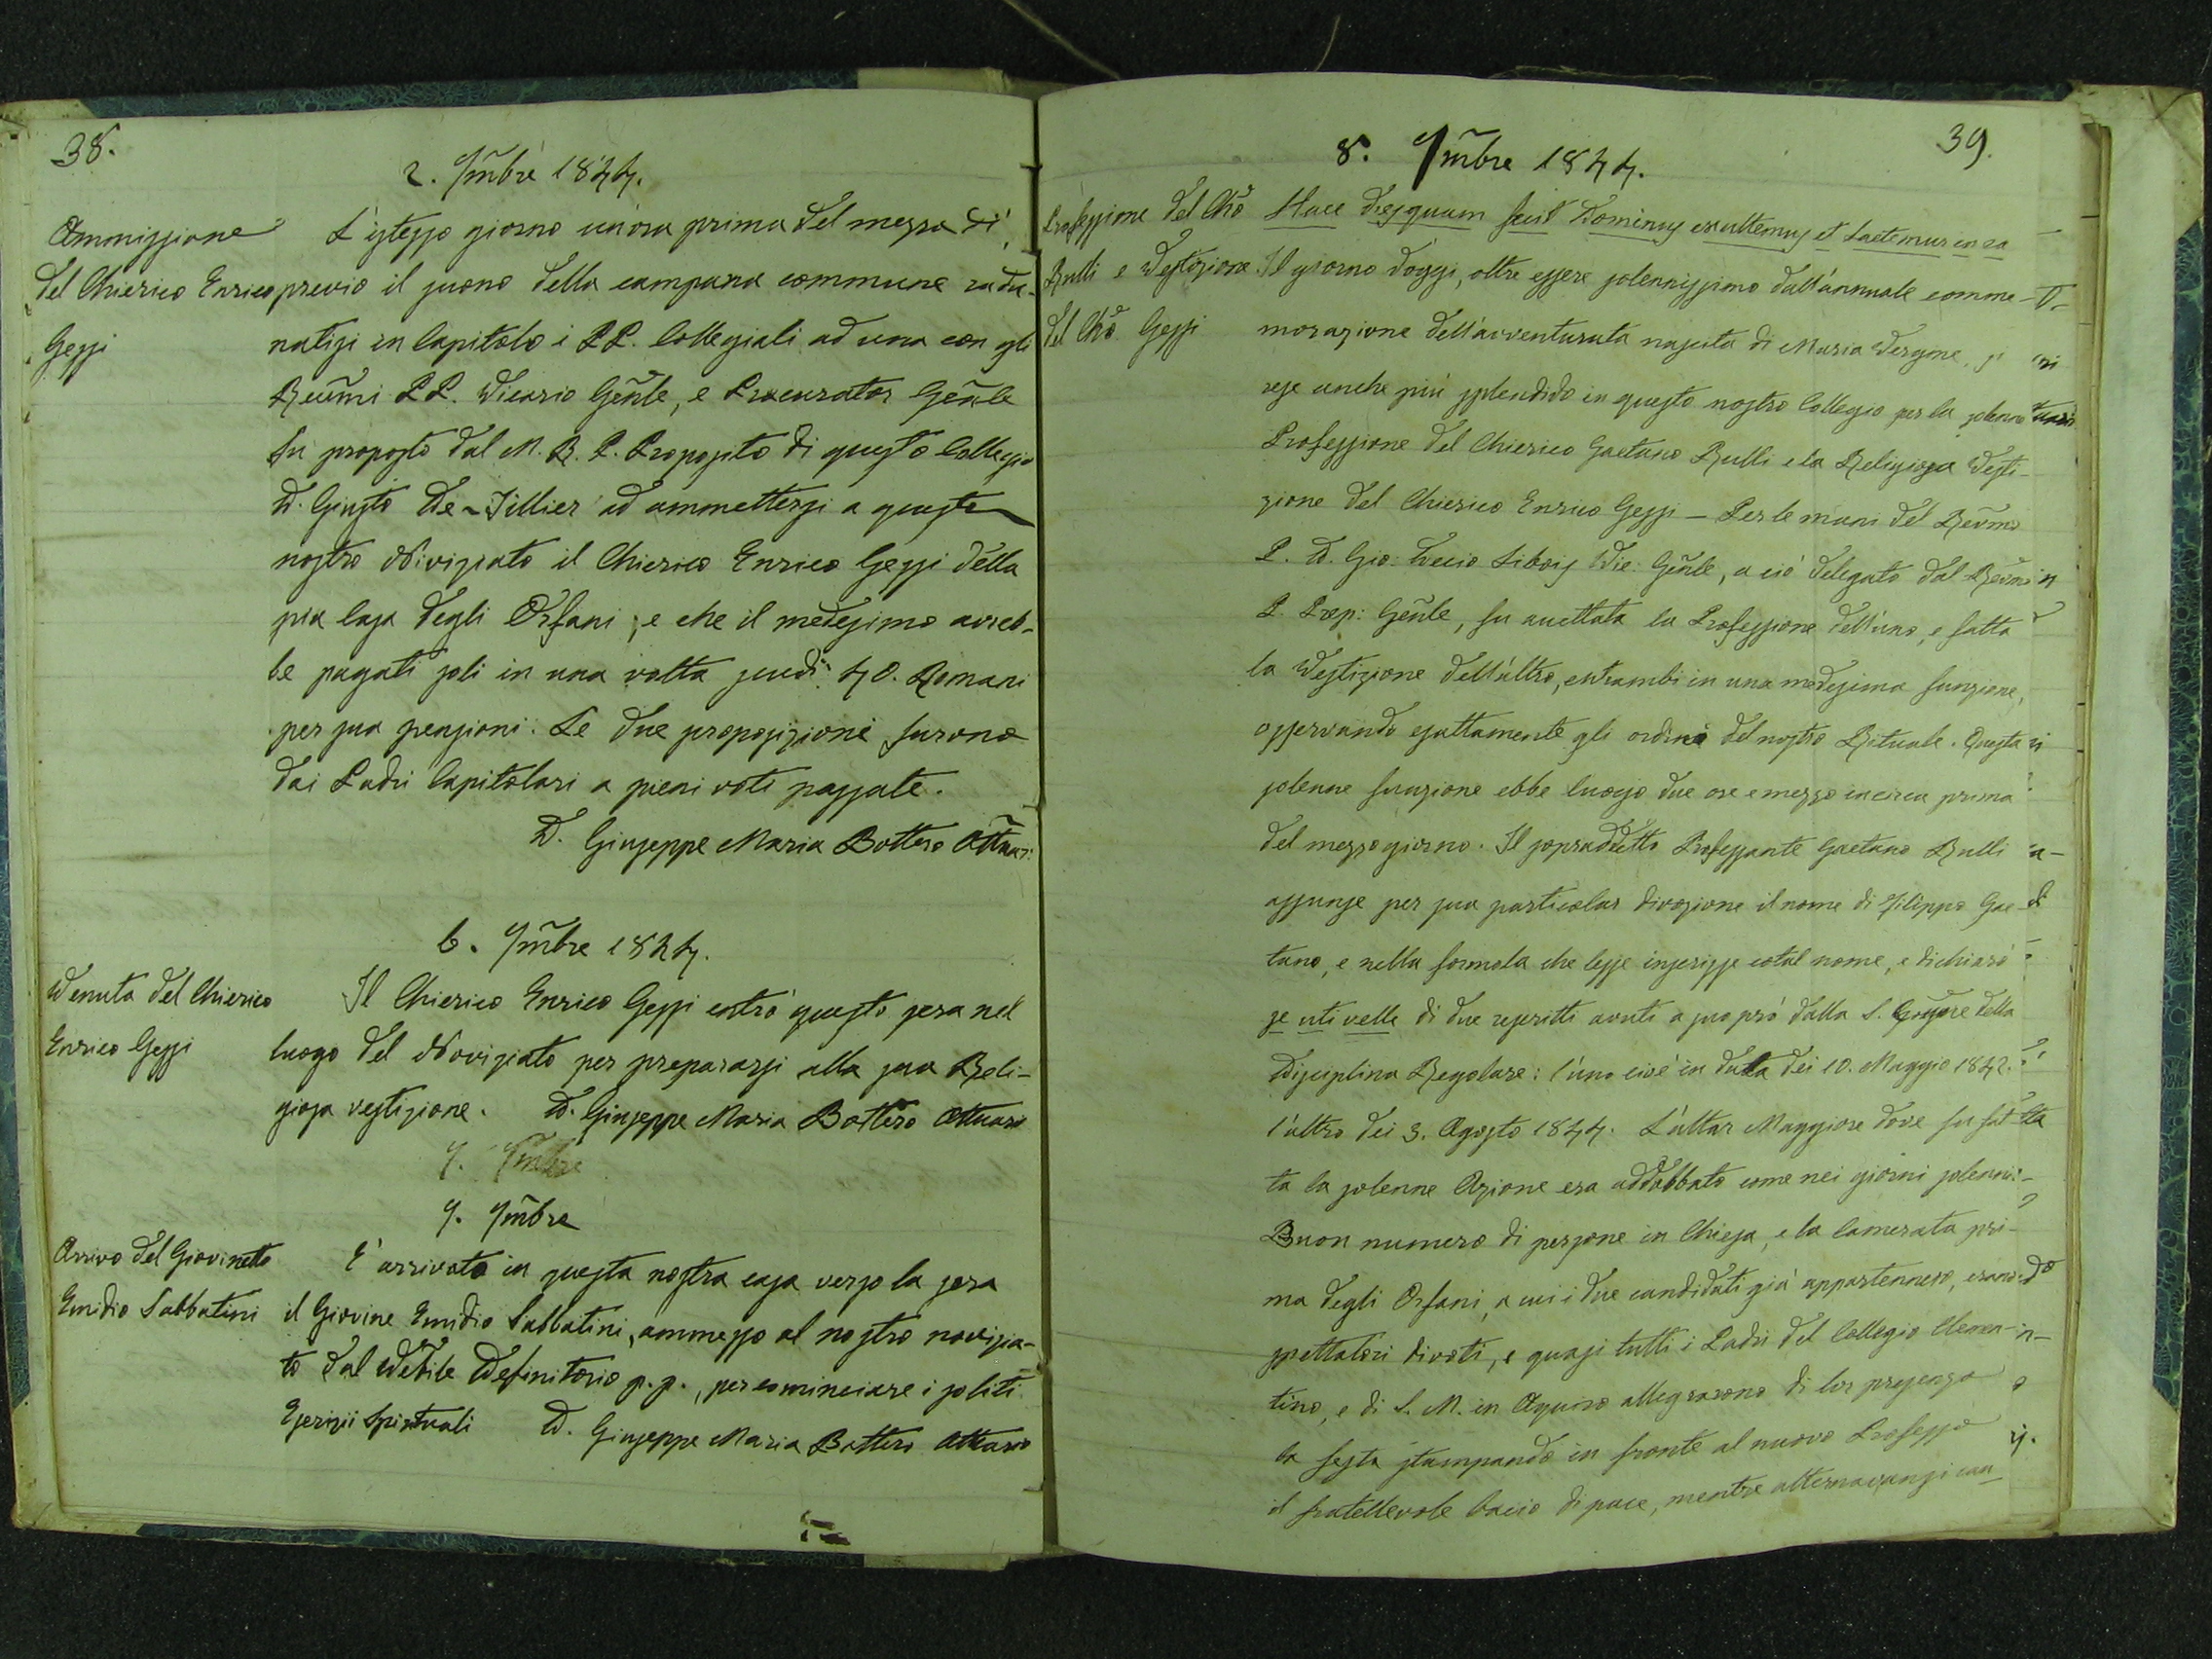 38.
2. 7mbre 1844.
Ammissione
del Chierico Enrico
Gessi
L'istesso giorno un'ora prima del mezzo dì,
previo il suono della campana commune radu-
natisi in Capitolo i PP. Collegiali ad una con gli
Reumi PP. Vicario Genle, e Procurator Genle
fu proposto dal M. R. P. Proposito di questo Collegio
D. Giusto De-Tillier ad ammettersi a questo
nostro Noviziato il Chierico Enrico Gessi della
pia Casa degli Orfani; e che il medesimo avreb-
be pagati soli in una volta scudi 40. Romani
per sua pensioni. Le due proposizioni furono
dai Padri Capitolari a pieni voti passate.
D. Giuseppe Maria Bottero Attuar:
6. 7mbre 1844.
Venuta del Chierico
Enrico Gessi
Il Chierico Enrico Gessi entrò questa sera nel
luogo del Noviziato per prepararsi alla sua Reli-
giosa vestizione. D. Giuseppe Maria Bottero Attuario
7. 7mbre
7. 7mbre
Arrivo del Giovinetto
Emidio Sabbatini
È arrivato in questa nostra casa verso la sera
il Giovine Emidio Sabbatini, ammesso al nostro novizia-
to dal Veñble Definitorio p.p., per cominciare i soliti
Esercizii Spirituali D. Giuseppe Maria Bottero Attuario
39.
8. 7mbre 1844.
Professione del Chõ
Rulli e Vestizione
del Chõ Gessi
Haec dies quam fecit Dominus exultemus et laetemur in ea
Il giorno d'oggi, oltre essere solennissimo dall'annuale comme-
morazione dell'avventurata nascita di Maria Vergine, si
rese anche più splendido in questo nostro Collegio per la solenne
Professione del Chierico Gaetano Rulli e la Religiosa Vesti-
zione del Chierico Enrico Gessi - Per le mani del Reumo
P. D. Gio: Decio Libois Vic: Genle, a ciò delegato dal Reumo
P. Prep: Genle, fu accettata la Professione dell'uno, e fatta
la Vestizione dell'altro, entrambi in una medesima funzione,
osservando esattamente gli ordini del nostro Rituale. Questa
solenne funzione ebbe luogo due ore e mezzo incirca prima
del mezzogiorno. Il sopraddetto Professante Gaetano Rulli
assunse per sua particolar divozione il nome di Filippo Gae-
tano, e nella formola che lesse inserisse cotal nome, e dichiarò
se uti velle di due rescritti avuti a suo prò dalla S. Congõne della
Disciplina Regolare: l'uno cioè in data dei 10. Maggio 1842.
l'altro dei 3. Agosto 1844. L'altar Maggiore dove fu fat-
ta la solenne Azione era addobbato come nei giorni solenni:
Buon numero di persone in Chiesa, e la Camerata pri-
ma degli Orfani, a cui i due candidati già appartennero, erano
spettatori divoti, e quasi tutti i Padri del Collegio Clemen-
tino, e di S. M. in Aquiro allegrarono di lor presenza
la festa stampando in fronte al nuovo Professo
il fratellevole bacio di pace, mentre alternavansi can